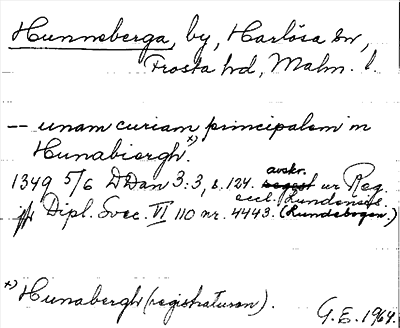 Hunneberga, by, Harlösa sn,
Frosta hd, Malm. l.
-- unam curiam principalem in
Hunabiergh.x)
1349 5/6 DDan 3:3, s. 124. avskr. ur Reg.
eccl. Lundensis.
jfr Dipl. Svec. VI 110 nr. 4443. (Lundebogen.)
x) Hunabergh (registraturen).
G.E. 1964.